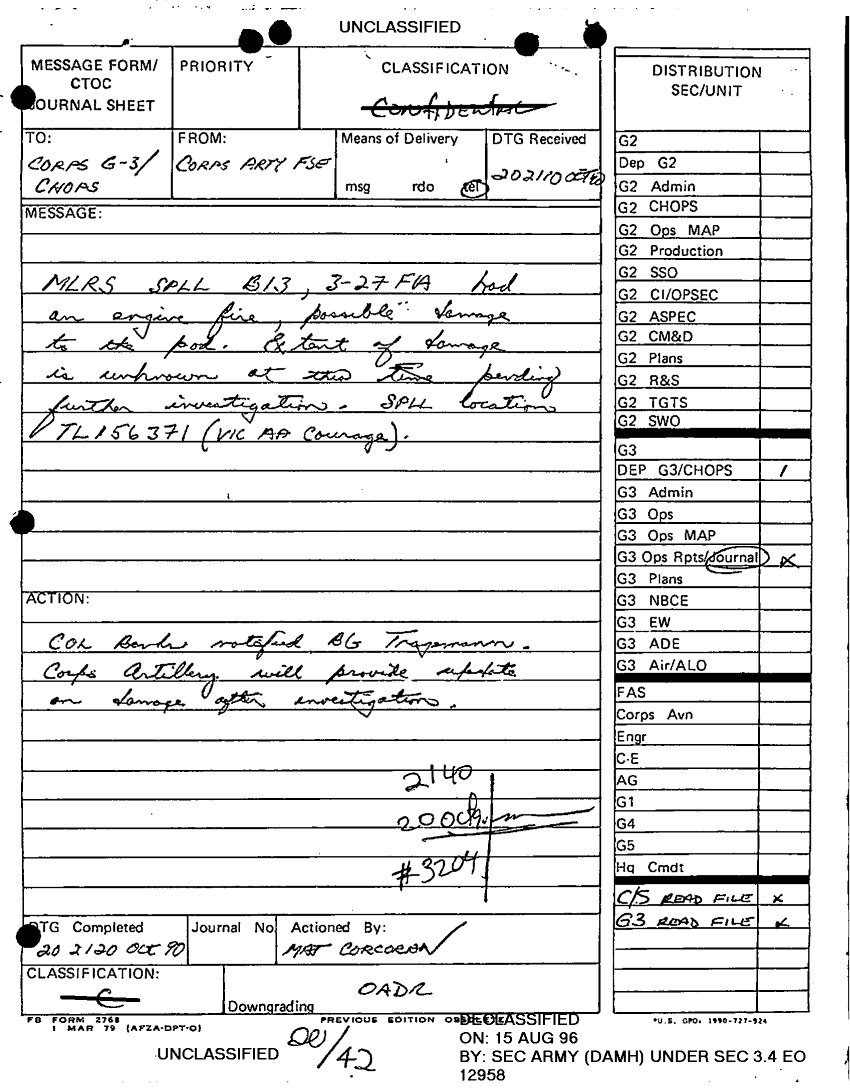 UNCLASSIFIED
MESSAGE FORM/
CTOC
JOURNAL SHEET
PRIORITY
CLASSIFICATION
CONFIDENTIAL
TO:
CORPS G-3/
CHOPS
FROM:
CORPS ARTY FSE
Means of Delivery
msg rdo tel
DTG Received
202110 OCT 90
MESSAGE:
MLRS SPLL B13, 3-27 FA had
an engine fire, possible damage
to the pod. Extent of damage
is unknown at this time pending
further investigation. SPLL location
TL156371 (VIC AA Courage).
ACTION:
COL notified BG Trapmann.
Corps Artillery will provide update
on damage after investigation.
2140
20 Oct
#3204
DTG Completed
20 2120 OCT 90
Journal No
Actioned By:
MAJ CORCORAN
CLASSIFICATION:
C
Downgrading
OADR
FB FORM 2768
1 MAR 79 (AFZA-DPT-O)
PREVIOUS EDITION
DISTRIBUTION
SEC/UNIT
G2
Dep G2
G2 Admin
G2 CHOPS
G2 Ops MAP
G2 Production
G2 SSO
G2 CI/OPSEC
G2 ASPEC
G2 CM&D
G2 Plans
G2 R&S
G2 TGTS
G2 SWO
G3
DEP G3/CHOPS /
G3 Admin
G3 Ops
G3 Ops MAP
G3 Ops Rpts/Journal X
G3 Plans
G3 NBCE
G3 EW
G3 ADE
G3 Air/ALO
FAS
Corps Avn
Engr
C-E
AG
G1
G4
G5
Hq Cmdt
C/S READ FILE X
G3 READ FILE X
*U.S. GPO: 1990-727-924
UNCLASSIFIED
/42
DECLASSIFIED
ON: 15 AUG 96
BY: SEC ARMY (DAMH) UNDER SEC 3.4 EO
12958